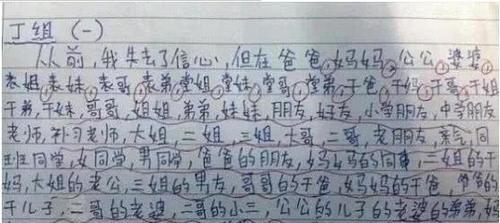 丁组 (一)
从前,我失去了信心,但在爸爸,妈妈,公公,婆婆,
表姐,表妹,表哥,表弟,堂姐,堂妹,堂哥,堂弟,干爸,干妈,干哥,干姐
干弟,干妹,哥哥,姐姐,弟弟,妹妹,朋友,好友,小学朋友,中学朋友
老师,补习老师,大姐,二姐,三姐,大哥,二哥,老朋友,亲戚,同
班同学,女同学,男同学,爸爸的朋友,妈妈的同事,三姐的干
妈,大姐的老公,三姐的男友,哥哥的干爸,妈妈的干爸,爷爷的
干儿子,二哥的老婆,二哥的小三,公公的儿子的老婆的弟弟